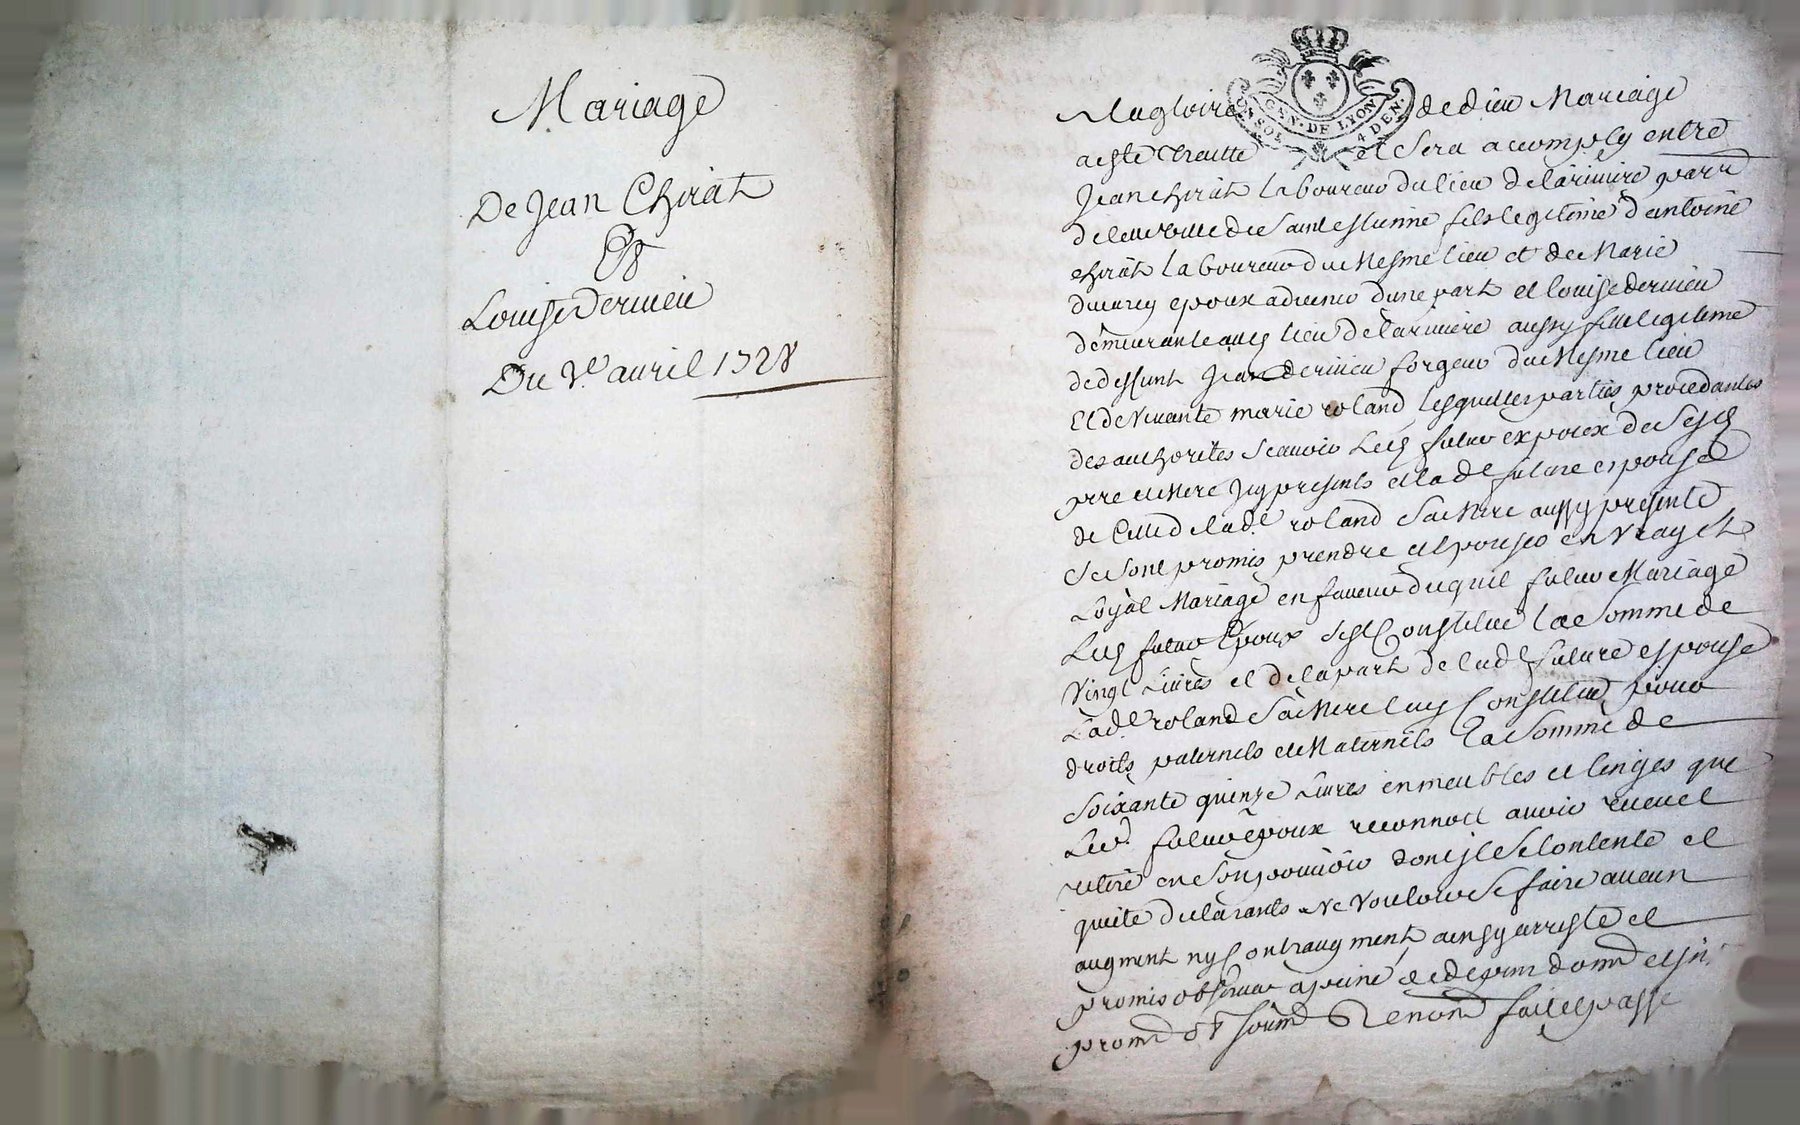 Mariage
De Jean Chirat
Et
Louise Derieu
Du 1.e avril 1728
GNN. DE LYON
UN SOL 4 DEN.
A la gloire de dieu Mariage
a esté traitté et sera accomply entre
Jean chirat laboureur du lieu de la riviere parr
de cette ville de saint estienne fils legitime d'antoine
chirat laboureur du mesme lieu et de Marie
epoux advenir d'une part et louise derieu
demeurante audt lieu de la riviere aussy fille legitime
de deffunt Jean derieu forgeur du mesme lieu
et de vivante marie roland lesquelles parties procedantes
des authorités scavoir led futur expoux de sesd
pere et mere jcy presents et lad.e future espouse
de celle de lad.e roland sa mere aussy presente
se sont promis prendre et espouser en vray et
loyal Mariage en faveur duquel futur Mariage
led futur Epoux s'est Constitué la somme de
vingt livres et de la part de lad.e future espouse
lad.e roland sa mere luy Constitue pour
droits paternels et maternels la somme de
soixante quinze livres en meubles et linges que
led. futur epoux reconnoit avoir receu et
retiré en son pouvoir dont jl se contente et
quite declarants ne vouloir se faire aucun
augment ny Contraugment ainsy arresté et
promis observer a peine de depens dom et jn
prom et soum Renon fait et passé